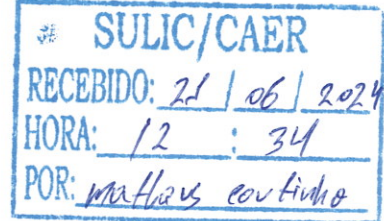 SULIC/CAER
RECEBIDO: 21 / 06 / 2024
HORA: 12 : 34
POR: matheus coutinho